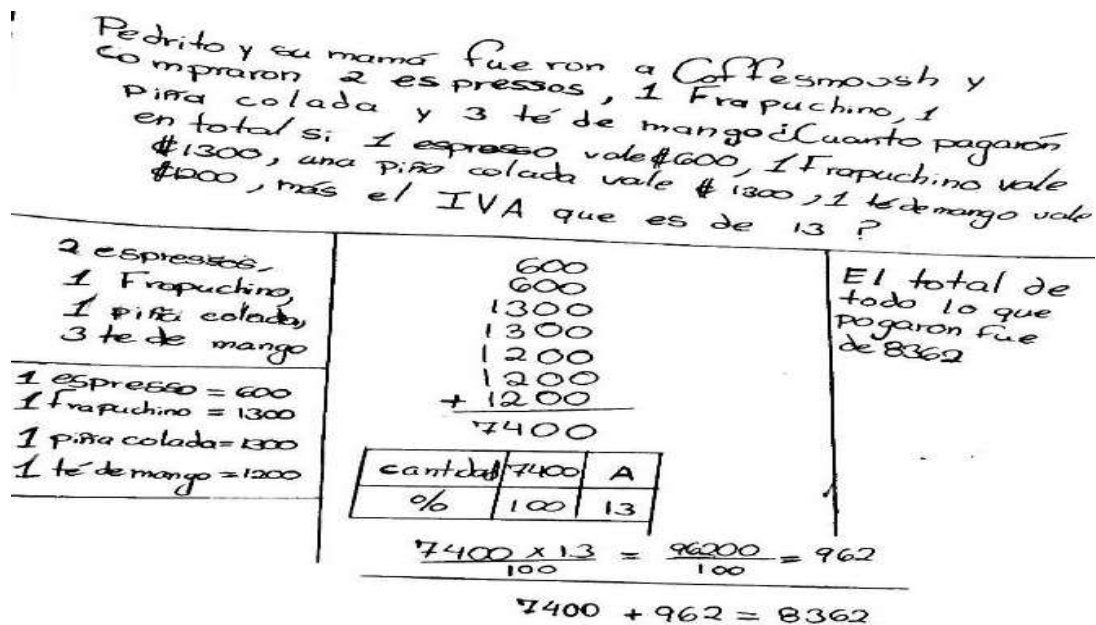 Pedrito y su mamá fueron a Coffesmoosh y
compraron 2 espressos, 1 Frapuchino, 1
piña colada y 3 té de mango ¿Cuanto pagarón
en total si 1 espresso vale ₡600, 1 Frapuchino vale
₡1300, una piña colada vale ₡1300, 1 té de mango vale
₡1200, más el IVA que es de 13 ?
2 espressos,
1 Frapuchino,
1 piña colada,
3 te de mango
1 espresso = 600
1 frapuchino = 1300
1 piña colada = 1300
1 té de mango = 1200
600
600
1300
1300
1200
1200
+ 1200
7400
cantidad 7400 A
% 100 13
7400 x 13 = 96200 = 962
100 100
7400 + 962 = 8362
El total de
todo lo que
pogaron fue
de 8362